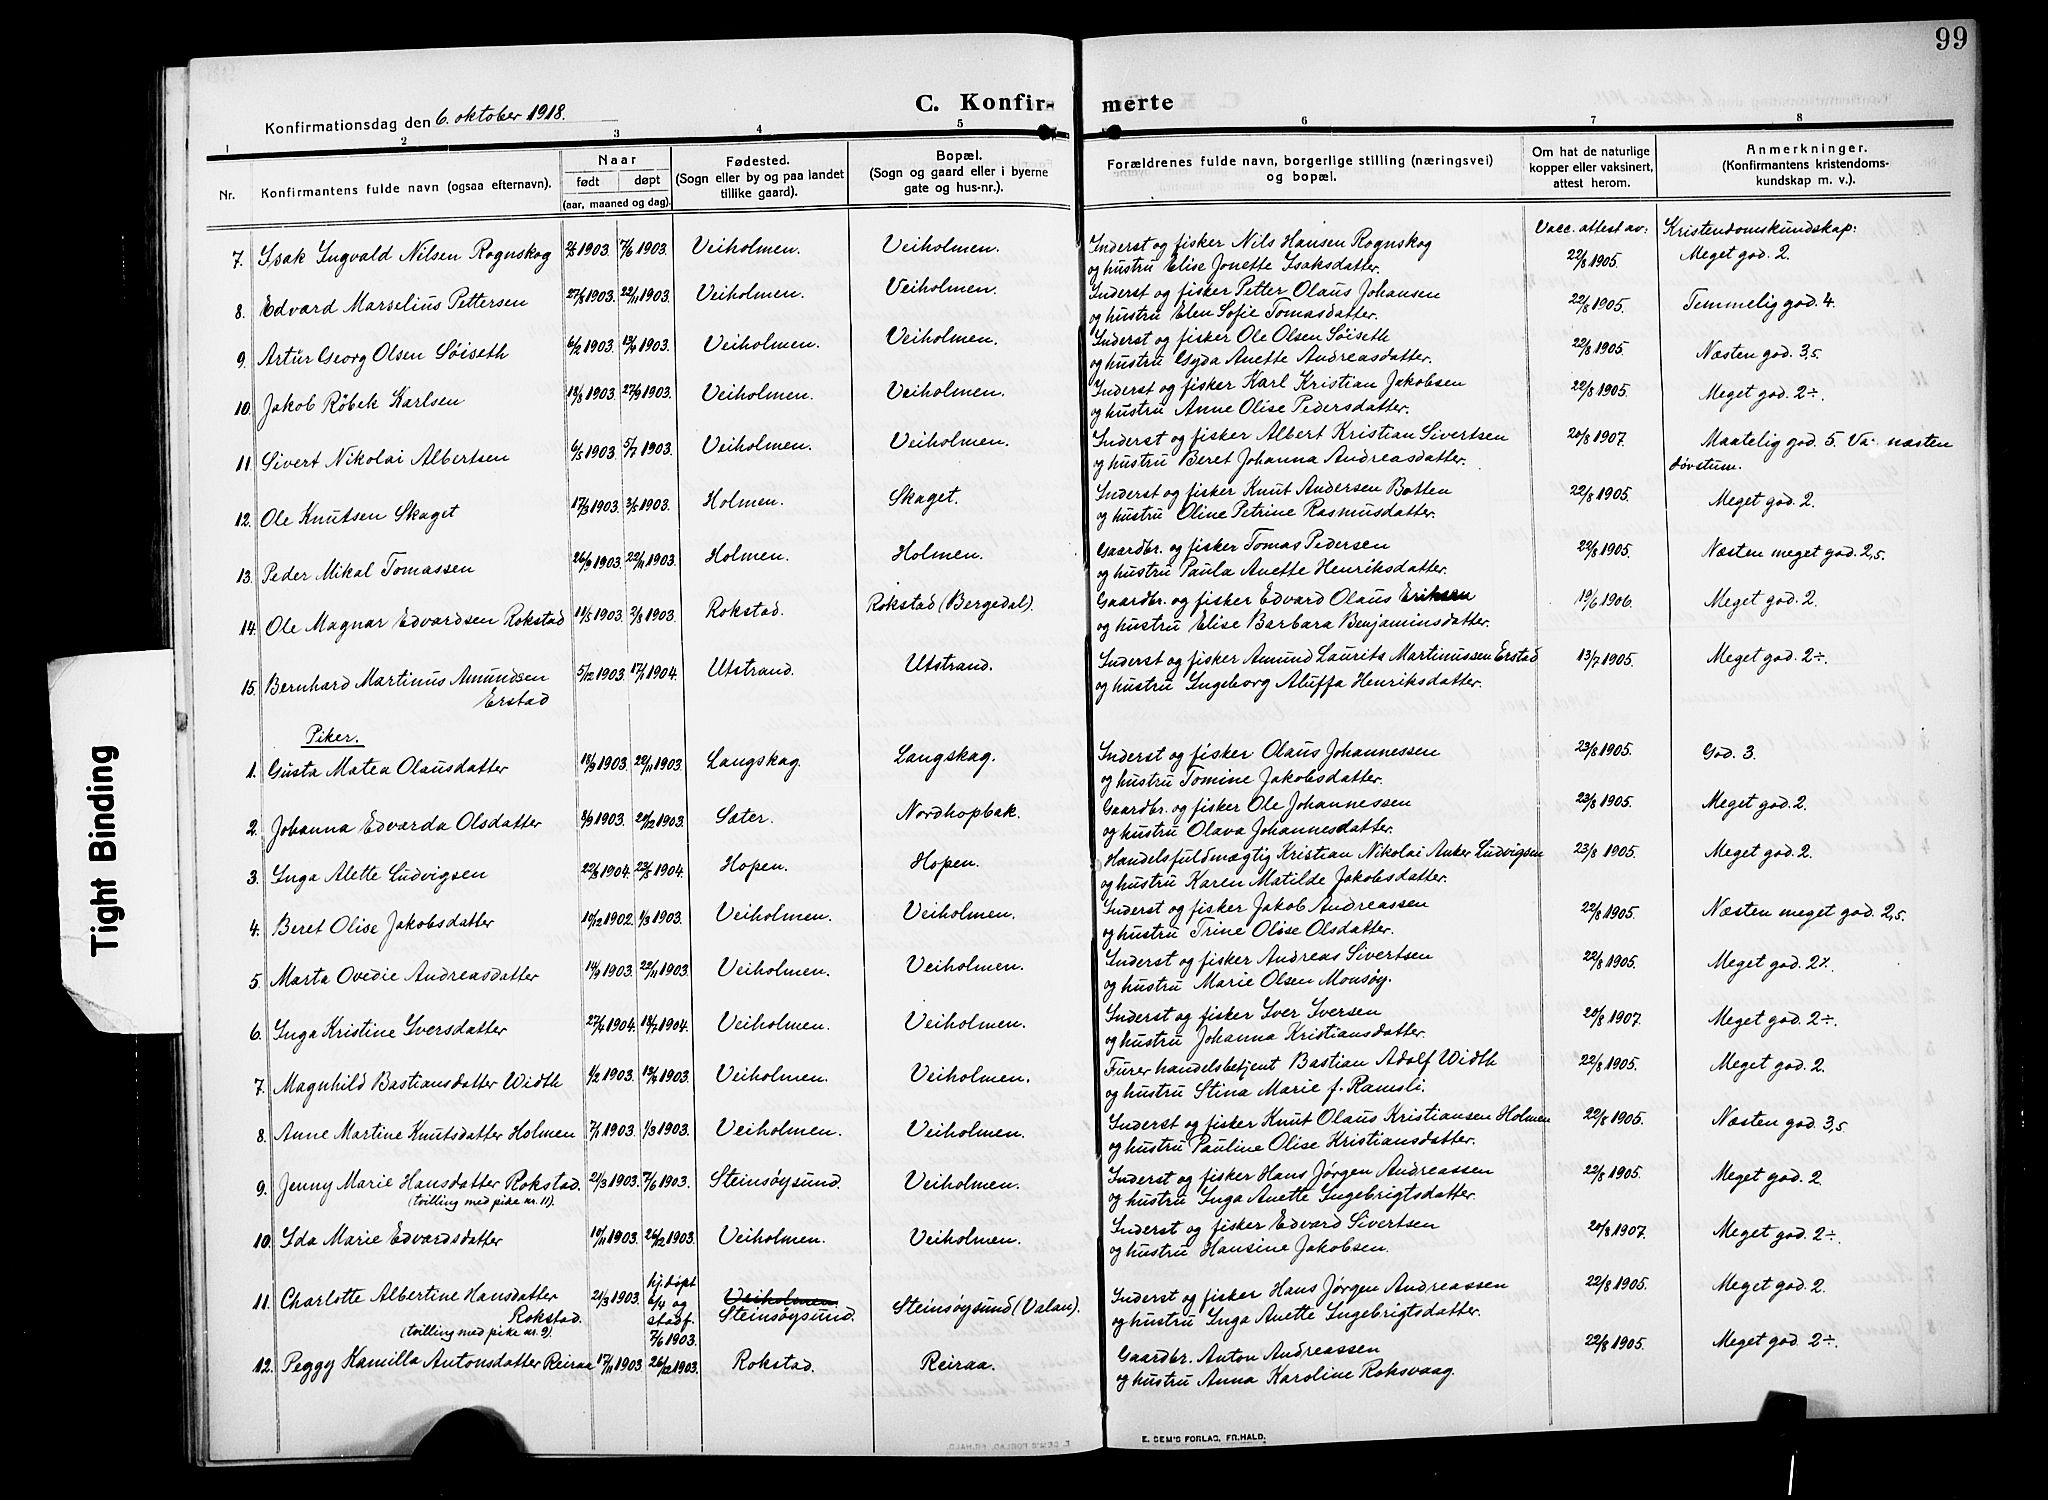 99
C. Konfir- merte
Konfirmationsdag den 6. oktober 1918.
1 2 3 4 5 6 7 8
Nr. Konfirmantens fulde navn (ogsaa efternavn). Naar født døpt (aar, maaned og dag). Fødested. (Sogn eller by og paa landet tillike gaard). Bopæl. (Sogn og gaard eller i byerne gate og hus-nr.). Forældrenes fulde navn, borgerlige stilling (næringsvei) og bopæl. Om hat de naturlige kopper eller vaksinert, attest herom. Anmerkninger. (Konfirmantens kristendomskundskap m. v.).
Vacc. attest av: Kristendomskundskap:
7. Isak Ingvald Nilsen Rognskog 1903. 7/6 1903. Veiholmen. Veiholmen. Inderst og fisker Nils Hansen Rognskog 22/8 1905. Meget god. 2.
og hustru Elise Jonette Isaksdatter.
8. Edvard Marselius Pettersen 1903. 22/11 1903. Veiholmen. Veiholmen. Inderst og fisker Petter Olaus Johansen 22/8 1905. Temmelig god. 4.
og hustru Elen Sofie Tomasdatter.
9. Artur Georg Olsen Søiseth 6/2 1903. 13/4 1903. Veiholmen. Veiholmen. Inderst og fisker Ole Olsen Søiseth 22/8 1905. Næsten god. 3,5.
og hustru Gyda Anette Andreasdatter.
10. Jakob Røbek Karlsen 1903. 27/9 1903. Veiholmen. Veiholmen. Inderst og fisker Karl Kristian Jakobsen 22/8 1905. Meget god. 2÷.
og hustru Anne Olise Pedersdatter.
11. Sivert Nikolai Albertsen 6/5 1903. 5/7 1903. Veiholmen. Veiholmen. Inderst og fisker Albert Kristian Sivertsen 20/8 1907. Maatelig god. 5. Va næsten
og hustru Beret Johanna Andreasdatter. døvstum.
12. Ole Knutsen Skaget 17/3 1903. 3/5 1903. Holmen. Skaget. Inderst og fisker Knut Andersen Botten 22/8 1905. Meget god. 2.
og hustru Oline Petrine Rasmusdatter.
13. Peder Mikal Tomassen 26/9 1903. 22/11 1903. Holmen. Holmen. Gaardbr. og fisker Tomas Pedersen 22/8 1905. Næsten meget god. 2,5.
og hustru Paula Anette Henriksdatter.
14. Ole Magnar Edvardsen Rokstad 1903. 2/8 1903. Rokstad. Rokstad (Bergedal). Gaardbr. og fisker Edvard Olaus Eriksen 19/6 1906. Meget god. 2.
og hustru Elise Barbara Benjaminsdatter.
15. Bernhard Martinus Amundsen 5/12 1903. 17/1 1904. Utstrand. Utstrand. Inderst og fisker Amund Laurits Martinussen Erstad 13/7 1905. Meget god. 2÷.
Erstad og hustru Ingeborg Aluffa Henriksdatter.
Piker.
1. Gusta Matea Olausdatter 18/9 1903. 22/11 1903. Langskag. Langskag. Inderst og fisker Olaus Johannessen 23/8 1905. God. 3.
og hustru Tomine Jakobsdatter.
2. Johanna Edvarda Olsdatter 1903. 20/12 1903. Sæter. Nordhopbak. Gaardbr. og fisker Ole Johannessen 23/8 1905. Meget god. 2.
og hustru Olava Johannesdatter.
3. Inga Alette Ludvigsen 22/3 1904. 23/5 1904. Hopen. Hopen. Handelsfuldmægtig Kristian Nikolai Anker Ludvigsen 23/8 1905. Meget god. 2.
og hustru Karen Matilde Jakobsdatter.
4. Beret Olise Jakobsdatter 10/12 1902. 1/3 1903. Veiholmen. Veiholmen. Inderst og fisker Jakob Andreassen 22/8 1905. Næsten meget god. 2,5.
og hustru Trine Oløse Olsdatter.
5. Marta Ovedie Andreasdatter 14/9 1903. 22/11 1903. Veiholmen. Veiholmen. Inderst og fisker Andreas Sivertsen 22/8 1905. Meget god. 2%.
og hustru Marie Olsen Monsøy.
6. Inga Kristine Iversdatter 27/4 1904. 1904. Veiholmen. Veiholmen. Inderst og fisker Iver Iversen 20/8 1907. Meget god. 2÷.
og hustru Johanna Kristiansdatter.
7. Magnhild Bastiansdatter Width 1/2 1903. 1903. Veiholmen. Veiholmen. Furer handelsbetjent Bastian Adolf Width 22/8 1905. Meget god. 2.
og hustru Stina Marie f. Ramsli.
8. Anne Martine Knutsdatter Holmen 7/1 1903. 1/3 1903. Veiholmen. Veiholmen. Inderst og fisker Knut Olaus Kristiansen Holmen 22/8 1905. Næsten god. 3,5.
og hustru Pauline Olise Kristiansdatter.
9. Jenny Marie Hansdatter Rokstad. 21/3 1903. 7/6 1903. Steinsøysund. Veiholmen. Inderst og fisker Hans Jørgen Andreassen 22/8 1905. Meget god. 2
(tvilling med pike nr. 11). og hustru Inga Anette Ingebrigtsdatter.
10. Ida Marie Edvardsdatter 10/11 1903. 26/12 1903. Veiholmen. Veiholmen. Inderst og fisker Edvard Sivertsen 20/8 1907. Meget god. 2÷.
og hustru Hansine Jakobsen.
11. Charlotte Albertine Hansdatter 21/3 1903. hj. døpt 6/4 og stadf. 7/6 1903. Veiholmen. Steinsøysund. Steinsøysund (Valan). Inderst og fisker Hans Jørgen Andreassen 22/8 1905. Meget god. 2.
Rokstad. og hustru Inga Anette Ingebrigtsdatter.
(tvilling med pike nr. 9).
12. Peggy Kamilla Antonsdatter Reiraa 17/11 1903. 26/12 1903. Rokstad. Reiraa. Gaardbr. Anton Andreassen 22/8 1905. Meget god. 2÷.
og hustru Anna Karoline Roksvaag.
E. SEM'S FORLAG, FR.HALD.
Tight Binding